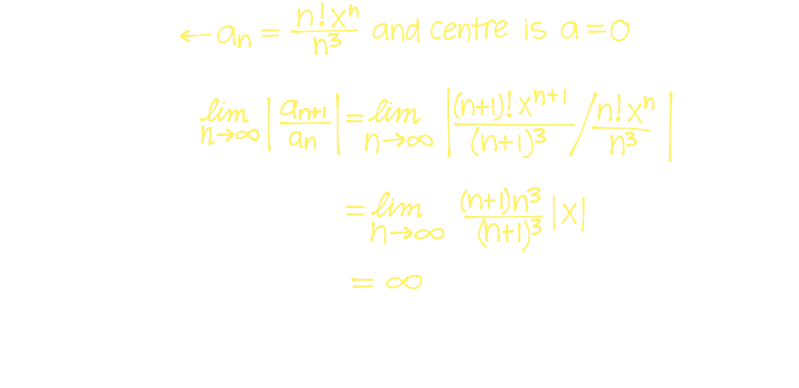 ← aₙ = n!xⁿ/n³ and centre is a = 0
lim n→∞ |aₙ₊₁/aₙ| = lim n→∞ |(n+1)!xⁿ⁺¹/(n+1)³ / n!xⁿ/n³|
= lim n→∞ (n+1)n³/(n+1)³ |x|
= ∞